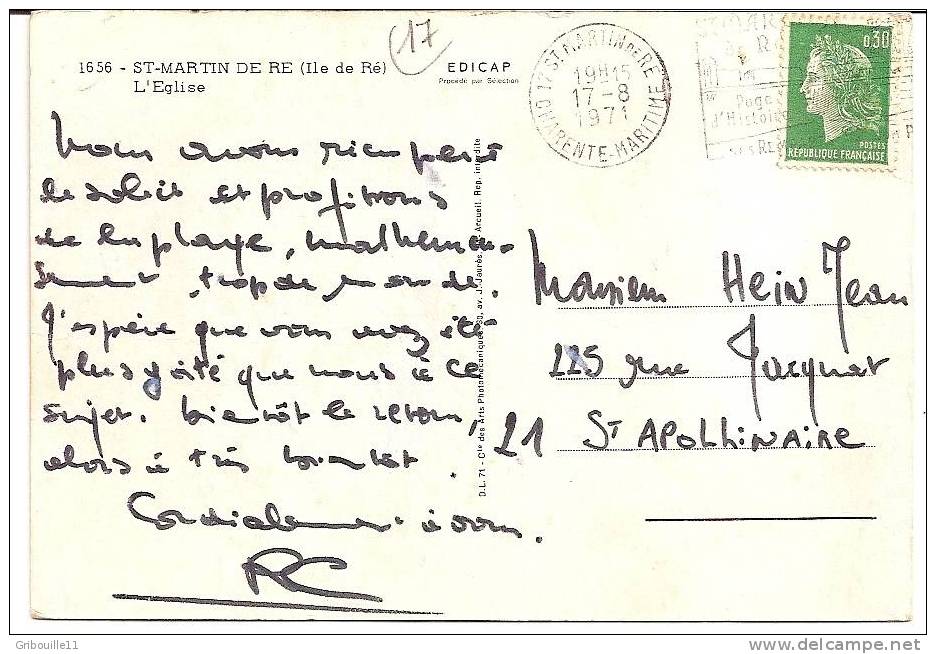 17
1656 - ST-MARTIN DE RE (Ile de Ré)
L'Eglise
EDICAP
Procédé par Sélection
17 ST. MARTIN DE RE
19H15
17-8
1971
CHARENTE-MARITIME
Page
d'Histoire
0,30
POSTES
REPUBLIQUE FRANÇAISE
Nous avons récupéré
le soleil et profitons
de la plage, malheureu-
sement trop de monde.
J'espère que vous avez été
plus gâté que nous à ce
sujet. bientôt le retour,
alors à très bientôt.
Cordialement à vous.
RC
D.L. 71 - Cie des Arts Photomécaniques, av. J. Jaurès, Arcueil. Rep. interdite
Monsieur Hein Jean
225 rue Jacquat
21 ST APOLLINAIRE
Gribouille11
www.delcampe.net